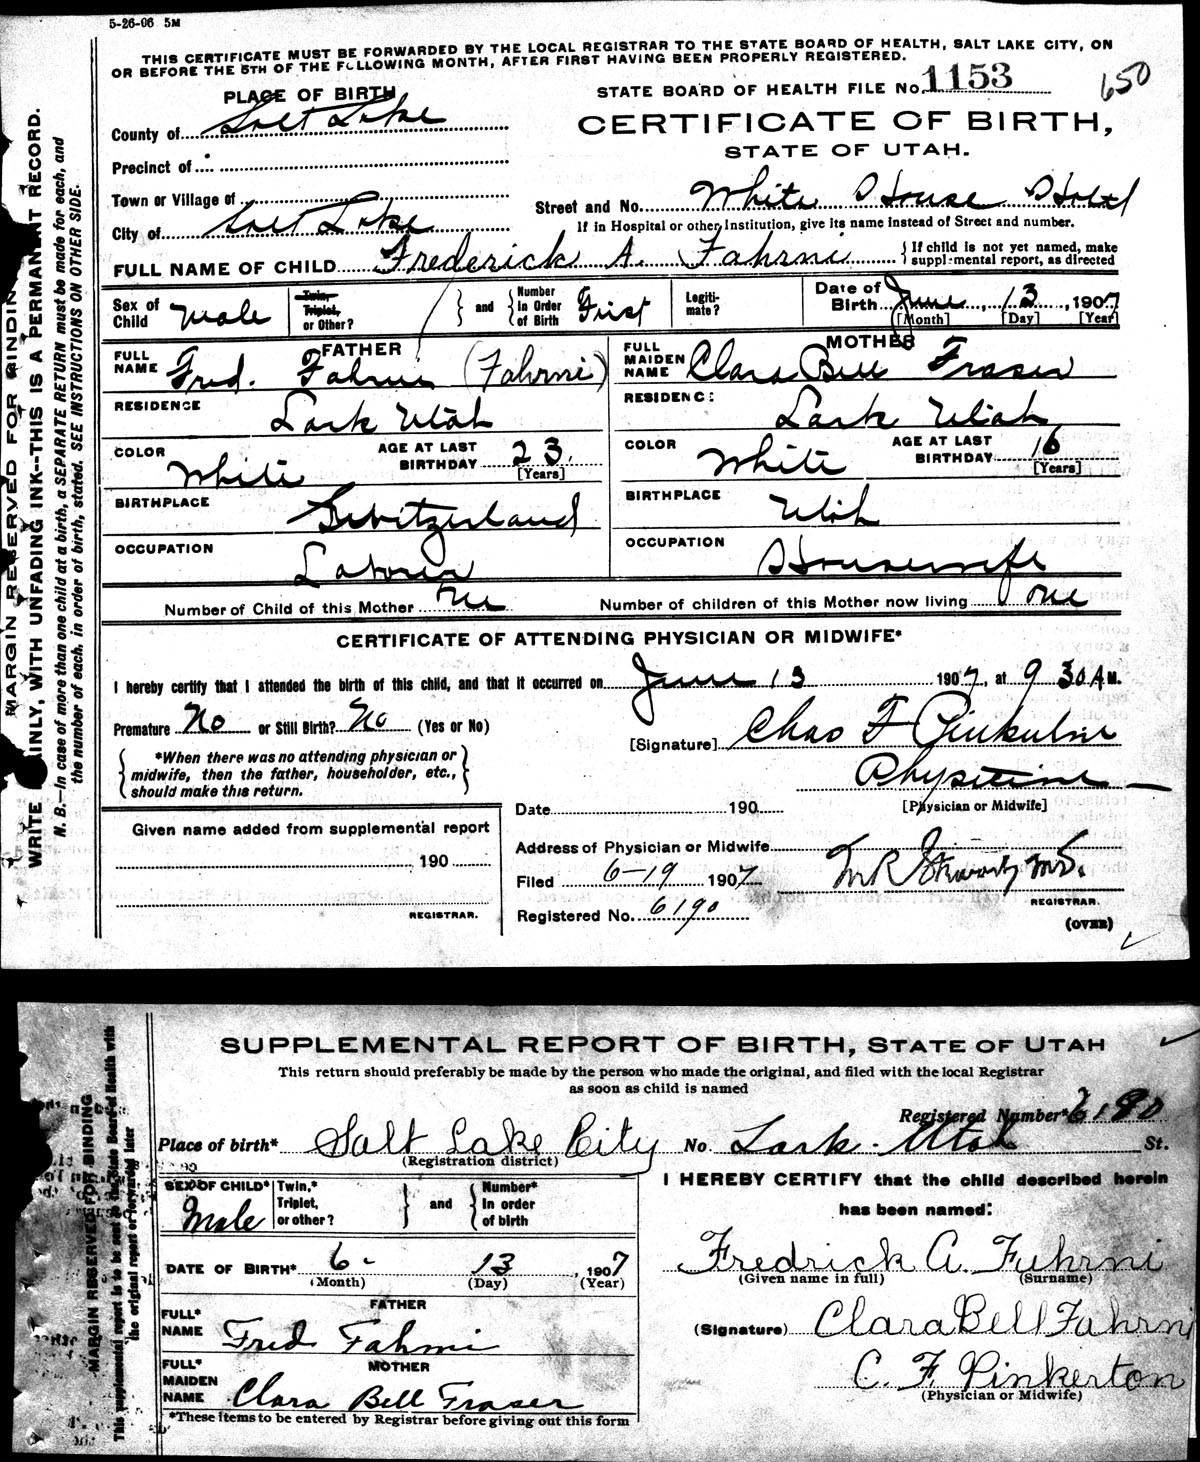 5-26-06 5M
THIS CERTIFICATE MUST BE FORWARDED BY THE LOCAL REGISTRAR TO THE STATE BOARD OF HEALTH, SALT LAKE CITY, ON
OR BEFORE THE 5TH OF THE FOLLOWING MONTH, AFTER FIRST HAVING BEEN PROPERLY REGISTERED.
PLACE OF BIRTH
STATE BOARD OF HEALTH FILE No. 1153 650
County of Salt Lake
CERTIFICATE OF BIRTH,
STATE OF UTAH.
Precinct of
Town or Village of
Street and No. White House Hotel
City of Salt Lake
If in Hospital or other Institution, give its name instead of Street and number.
FULL NAME OF CHILD Frederick A. Fahrni
If child is not yet named, make
supplemental report, as directed
Sex of Child Male
Twin, Triplet, or Other?
and
Number in Order of Birth First
Legiti-mate?
Date of Birth June 13, 1907
[Month] [Day] [Year]
FATHER
FULL NAME Fred. Fahrni (Fahrni)
MOTHER
FULL MAIDEN NAME Clara Bell Fraser
RESIDENCE Lark Utah
RESIDENCE Lark Utah
COLOR White
AGE AT LAST BIRTHDAY 23 [Years]
COLOR White
AGE AT LAST BIRTHDAY 16 [Years]
BIRTHPLACE Switzerland
BIRTHPLACE Utah
OCCUPATION Laborer
OCCUPATION Housewife
Number of Child of this Mother One
Number of children of this Mother now living one
CERTIFICATE OF ATTENDING PHYSICIAN OR MIDWIFE*
I hereby certify that I attended the birth of this child, and that it occurred on June 13 1907, at 9 30 A M.
Premature No or Still Birth? No (Yes or No)
[Signature] Chas F Pinkerton
*When there was no attending physician or
midwife, then the father, householder, etc.,
should make this return.
Physician
[Physician or Midwife]
Date 190
Given name added from supplemental report
190
REGISTRAR.
Address of Physician or Midwife
Filed 6-19 1907
M.D.
REGISTRAR.
Registered No. 6190
(OVER)
MARGIN RESERVED FOR BINDING
WRITE PLAINLY, WITH UNFADING INK--THIS IS A PERMANENT RECORD.
N. B.—In case of more than one child at a birth, a SEPARATE RETURN must be made for each, and
the number of each, in order of birth, stated. SEE INSTRUCTIONS ON OTHER SIDE.
SUPPLEMENTAL REPORT OF BIRTH, STATE OF UTAH
This return should preferably be made by the person who made the original, and filed with the local Registrar
as soon as child is named
Registered Number* 6190
Place of birth* Salt Lake City No. Lark - Utah St.
(Registration district)
SEX OF CHILD* Male
Twin,* Triplet, or other?
and
Number* in order of birth
I HEREBY CERTIFY that the child described herein
has been named:
DATE OF BIRTH* 6- 13, 1907
(Month) (Day) (Year)
Fredrick A. Fahrni
(Given name in full) (Surname)
FATHER
FULL* NAME Fred Fahrni
(Signature) Clara Bell Fahrni
MOTHER
FULL* MAIDEN NAME Clara Bell Fraser
C. F. Pinkerton
(Physician or Midwife)
*These items to be entered by Registrar before giving out this form
MARGIN RESERVED FOR BINDING
This supplemental report is to be sent to the State Board of Health with
the original report or forwarded later